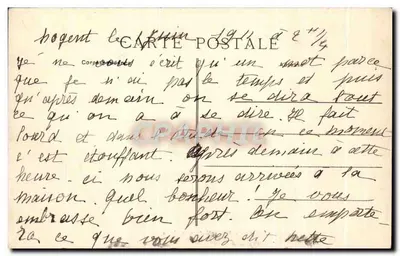 Nogent le juin 1911 à 2 h 1/4
CARTE POSTALE
je ne vous écrit qu'un mot parce
que je n'ai pas le temps et puis
qu'après demain on se dira tout
ce qu'on a à se dire. Il fait
lourd et dans ce moment
c'est étouffant Après demain à cette
heure ci nous serons arrivées à la
maison. Quel bonheur! Je vous
embrasse bien fort. On emporte-
ra ce que vous avez dit